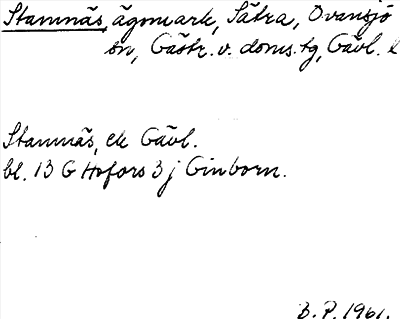 Stamnäs, ägomark, Sätra, Ovansjö
sn, Gästr. v. doms.tg, Gävl. l
Stamnäs, ek Gävl.
bl. 13 G Hofors 3 j Ginborn.
B.P. 1961.